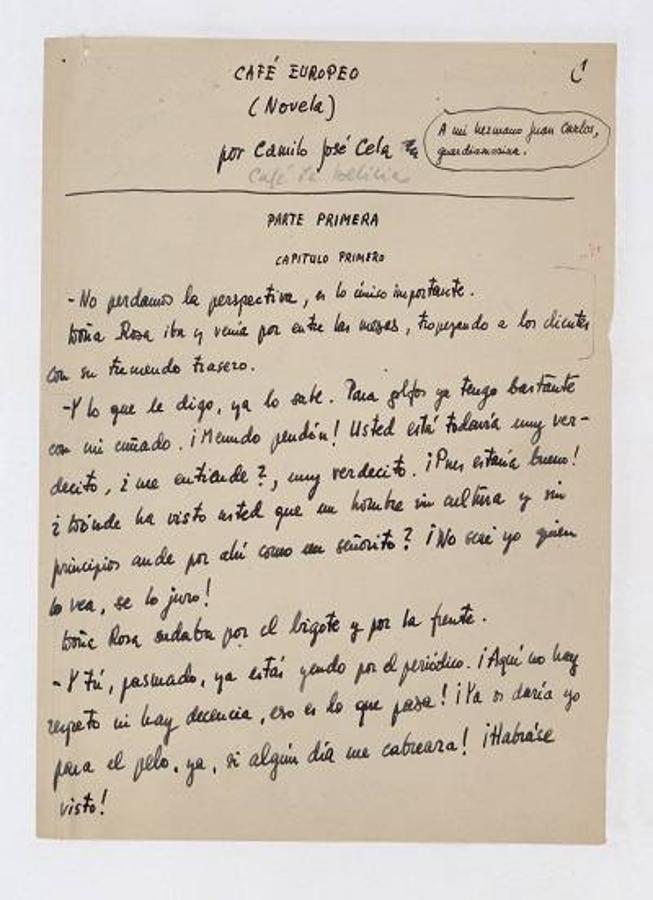 CAFÉ EUROPEO
(Novela)
por Camilo José Cela
A mi hermano Juan Carlos,
guardiamarina.
Café
PARTE PRIMERA
CAPITULO PRIMERO
-No perdamos la perspectiva, es lo único importante.
Doña Rosa iba y venía por entre las mesas, tropezando a los clientes
con su tremendo trasero.
-Y lo que le digo, ya lo sabe. Para golfos ya tengo bastante
con mi cuñado. ¡Menudo pendón! Usted está todavía muy ver-
decito, ¿me entiende?, muy verdecito. ¡Pues estaría bueno!
¿Dónde ha visto usted que un hombre sin cultura y sin
principios ande por ahí como un señorito? ¡No seré yo quien
lo vea, se lo juro!
Doña Rosa sudaba por el bigote y por la frente.
-Y tú, pasmado, ya estás yendo por el periódico. ¡Aquí no hay
respeto ni hay decencia, eso es lo que pasa! ¡Ya os daría yo
para el pelo, ya, si algún día me cabreara! ¡Habráse
visto!